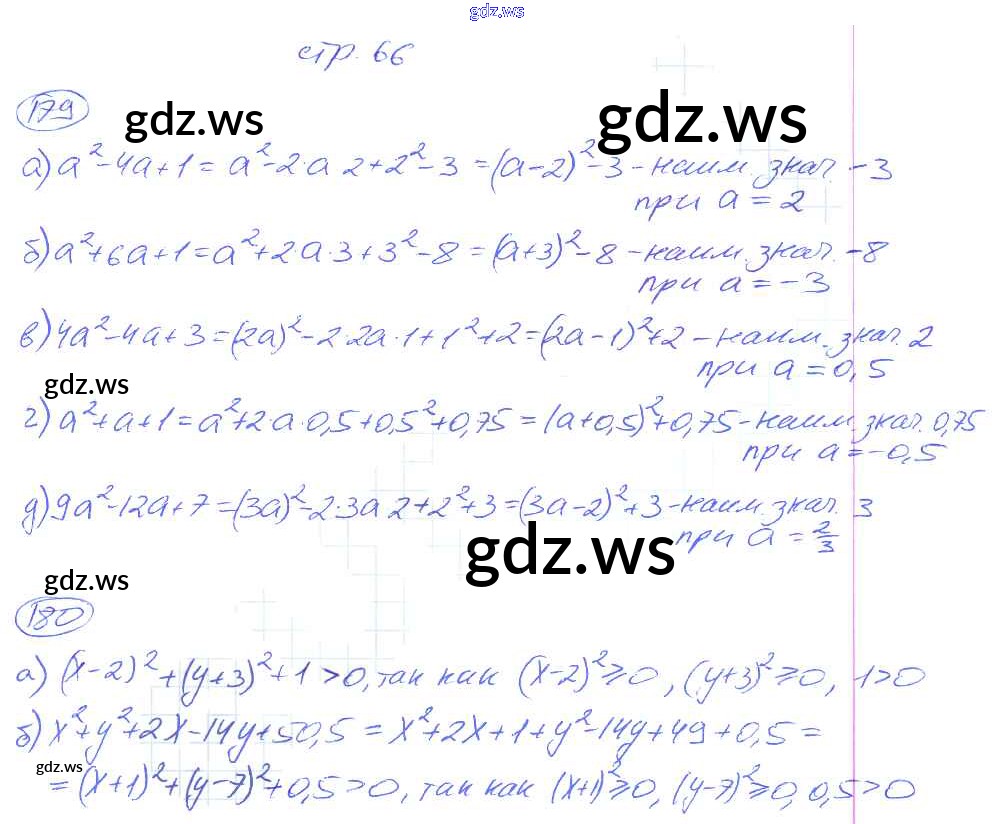 gdz.ws
стр. 66
179
gdz.ws
gdz.ws
а) a² - 4a + 1 = a² - 2·a 2 + 2² - 3 = (a-2)² - 3 - наим. знач. -3
при a = 2
б) a² + 6a + 1 = a² + 2·a·3 + 3² - 8 = (a+3)² - 8 - наим. знач. -8
при a = -3
в) 4a² - 4a + 3 = (2a)² - 2·2a·1 + 1² + 2 = (2a-1)² + 2 - наим. знач. 2
при a = 0,5
gdz.ws
г) a² + a + 1 = a² + 2·a·0,5 + 0,5² + 0,75 = (a+0,5)² + 0,75 - наим. знач. 0,75
при a = -0,5
д) 9a² - 12a + 7 = (3a)² - 2·3a 2 + 2² + 3 = (3a-2)² + 3 - наим. знач. 3
при a = 2/3
gdz.ws
gdz.ws
180
а) (x-2)² + (y+3)² + 1 > 0, так как (x-2)² ≥ 0, (y+3)² ≥ 0, 1 > 0
б) x² + y² + 2x - 14y + 50,5 = x² + 2x + 1 + y² - 14y + 49 + 0,5 =
gdz.ws
= (x+1)² + (y-7)² + 0,5 > 0, так как (x+1)² ≥ 0, (y-7)² ≥ 0, 0,5 > 0